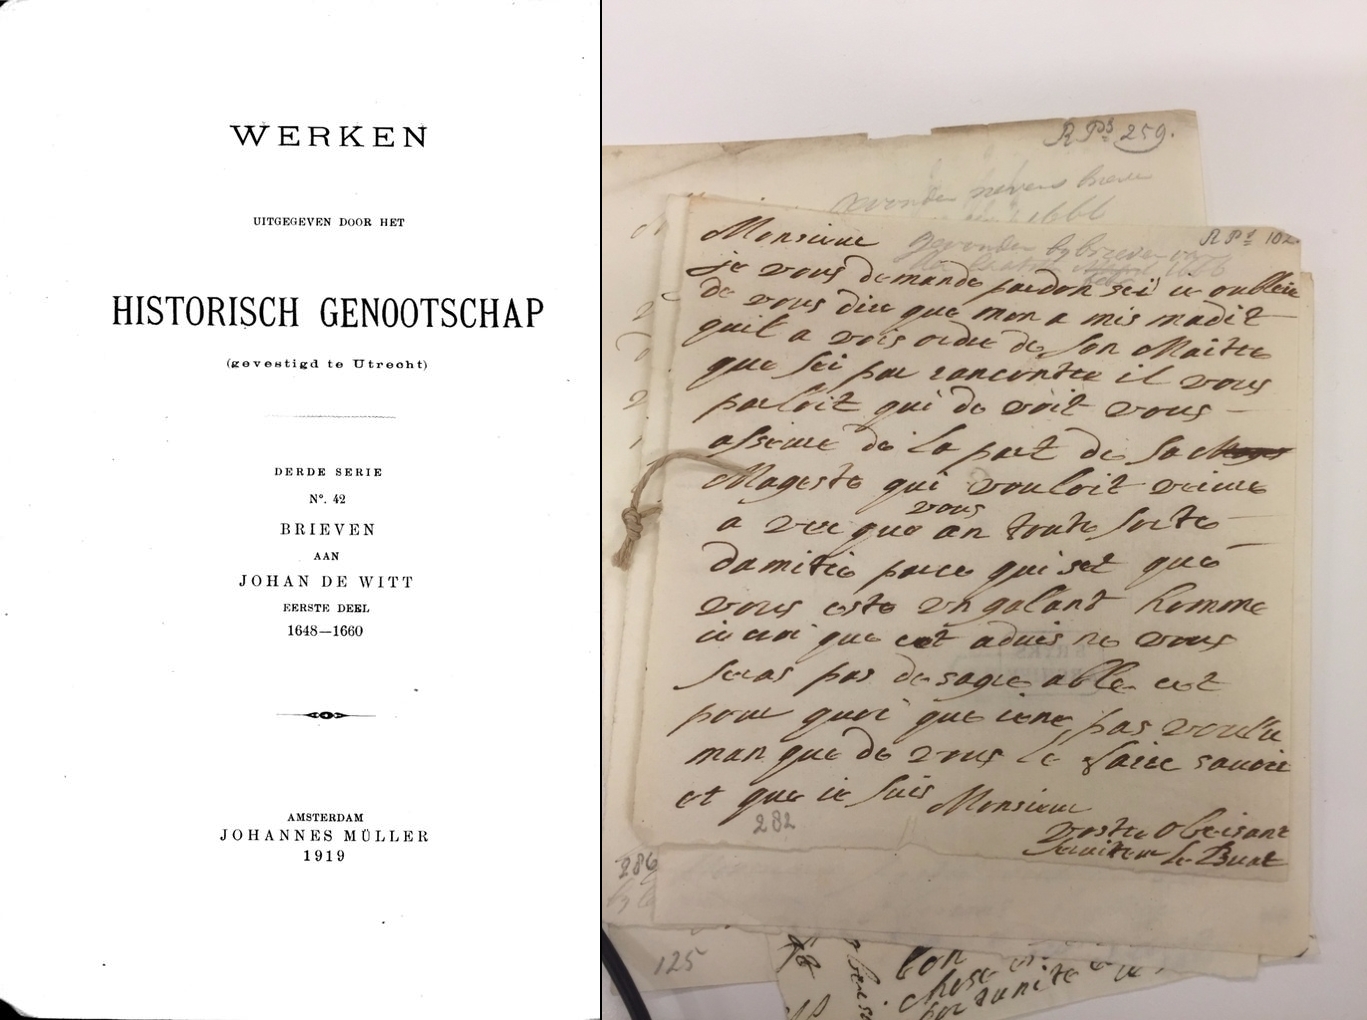 WERKEN
UITGEGEVEN DOOR HET
HISTORISCH GENOOTSCHAP
(gevestigd te Utrecht)
DERDE SERIE
N°. 42
BRIEVEN
AAN
JOHAN DE WITT
EERSTE DEEL
1648—1660
AMSTERDAM
JOHANNES MÜLLER
1919
R Ps 259.
1666
R Ps 102
Monsieur
je vous demande pardon sei ie oublie
de vous dire que mon a mis madit
quil a vois ordre de son Maitre
que sei par rancontre il vous
parloit qui de voit vous
asseure de la part de sa
Mageste qui vouloit vivre
a vec que vous an toute sorte
damitie parce qui set que
vous este vn galant homme
ie croi que cet aduis ne vous
seras pas desagre able cet
pour quoi que iene pas voulu
manque de vous le faire sauoir
et que ie suis Monsieur
vostre obeisant
seruiteur le Buat
282
286
125